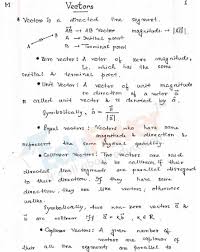 Vectors
• Vector is a directed line segment.
AB → AB vector magnitude → |AB|
A → Initial point
B → Terminal point
• Zero vector: A vector of zero magnitude,
i.e. which has the same
initial & terminal point.
• Unit Vector: A vector of unit magnitude
in direction of a vector a
is called unit vector & is denoted by â.
Symbolically, â = a / |a|
• Equal vectors: Vectors who have same
magnitude & direction &
represent the same physical quantity.
• Collinear Vectors: The vectors are said
to be collinear if their
directed line segments are parallel disregard
to their direction. If they have same
direction, they are like vectors, otherwise
unlike.
Symbolically, two non-zero vectors a &
b are collinear iff a = kb, k ∈ R
• Coplanar Vectors: A given number of
vectors are coplanar if
their line segments are parallel to